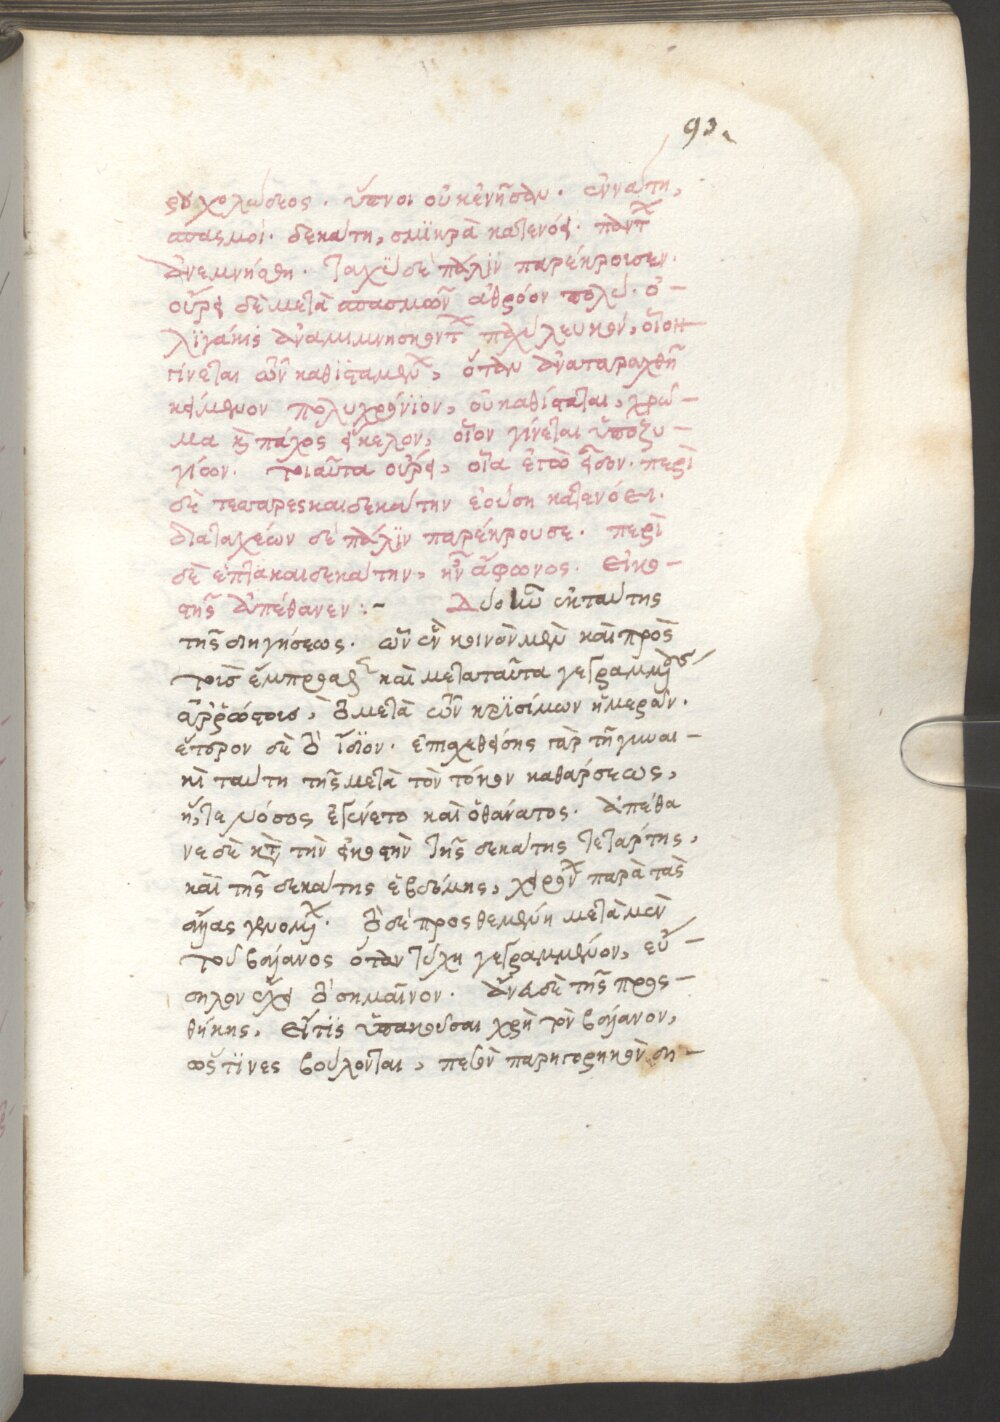 93
σὺ χολώδεος. ὕπνοι οὐκ ἐνῆσαν. ἐννάτη,
σπασμοί. δεκάτη, σμικρὰ κατενόει. πάντ
ἀνεμνήσθη. ταχὺ δὲ πάλιν παρέκρουσεν.
οὖρα δὲ μετὰ σπασμῶν ἀθρόον πολύ. ὀ-
λιγάκις ἀναμιμνησκοντ παχὺ λευκόν, οἷον
γίνεται τῶν καθισταμεν, ὅταν ἀναταραχθῆ
κείμενον πολυχρόνιον, οὐ καθίσταται, χρῶ-
μα κ πάχος ἴκελον, οἷον γίνεται ὑποζυ-
γίων. τοιαῦτα οὖρα, οἷα ἐγὼ εἶδον. περὶ
δὲ τεσσαρεσκαιδεκάτην ἐούση κατενόει.
διαταχέων δὲ πάλιν παρέκρουσε. περὶ
δὲ ἑπτακαιδεκάτην, ἦν ἄφωνος. εἰκο-
στῆ ἀπέθανεν:-     Δύο ἐκ ταύτης
τῆς διηγήσεως. ὧν ἓν κοινὸν μὲν καὶ πρὸς
τοῖς ἔμπροσθεν καὶ μεταταῦτα γεγραμμ
ἀρρώστοις, τὸ μετὰ τῶν κρισίμων ἡμερῶν.
ἕτερον δὲ τὸ ἴδιον. ἐπισχεθείσης γὰρ τῆ γυναι-
κὶ ταύτη τῆς μετὰ τὸν τόκον καθάρσεως,
ἥ τε νόσος ἐγένετο καὶ ὁ θάνατος. ἀπέθα
νε δὲ κτ τὴν εἰκοστὴν τῆς δεκάτης τετάρτης,
καὶ τῆς δεκάτης ἑβδόμης, παρὰ τὰς
τὸ δὲ προσθεμεν μετὰ μὲν
τοῦ βαιάνος ὅταν τύχη γεγραμμένον, εὔ-
δηλον ἔχει τὸ σημαῖνον. ἄνευ δὲ τῆς προσ-
θήκης, εἴτις ὑπακοῦσαι χρὴ τὸν βαιάνον,
ὥς τινες βούλονται, παρηγορικὸν